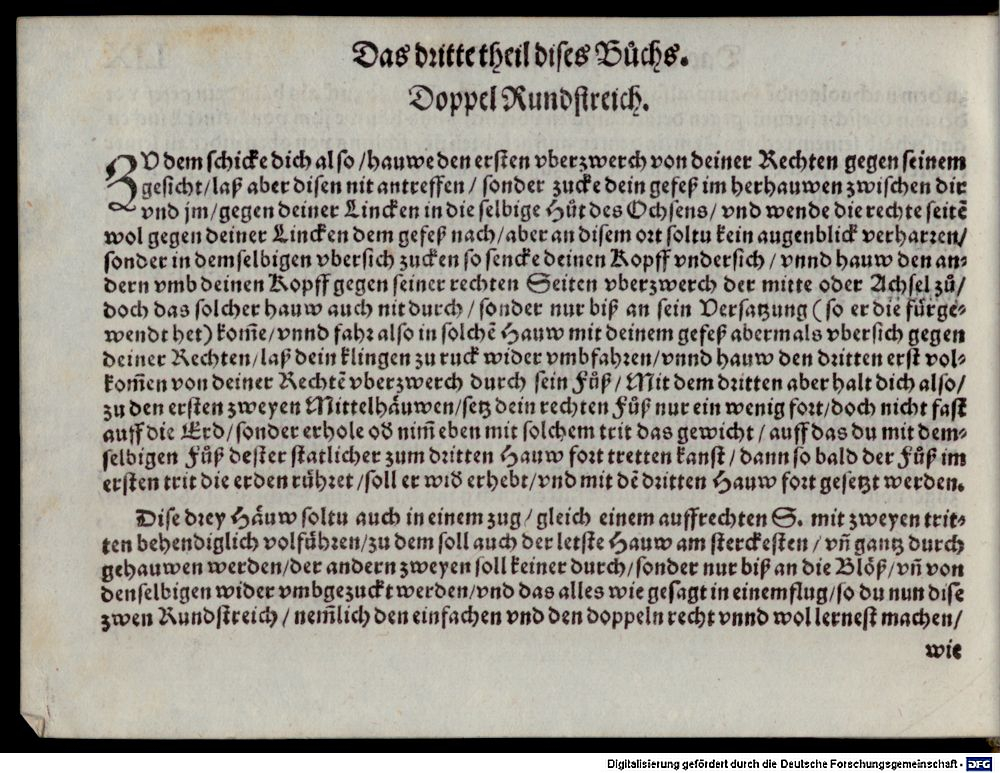 Das dritte theil dises Bůchs.
Doppel Rundstreich.
ZV dem schicke dich also/hauwe den ersten vberzwerch von deiner Rechten gegen seinem
gesicht/laß aber disen nit antreffen/ sonder zucke dein gefeß im herhauwen zwischen dir
vnd jm/gegen deiner Lincken in die selbige Hůt des Ochsens/ vnd wende die rechte seitẽ
wol gegen deiner Lincken dem gefeß nach/aber an disem ort soltu kein augenblick verharren/
sonder in demselbigen vbersich zucken so sencke deinen Kopff vndersich/ vnnd hauw den an-
dern vmb deinen Kopff gegen seiner rechten Seiten vberzwerch der mitte oder Achsel zů/
doch das solcher hauw auch nit durch/ sonder nur biß an sein Versatzung (so er die fürge-
wendt het) kom̃e/vnnd fahr also in solchẽ Hauw mit deinem gefeß abermals vbersich gegen
deiner Rechten/laß dein klingen zu ruck wider vmbfahren/vnnd hauw den dritten erst vol-
kom̃en von deiner Rechtẽ vberzwerch durch sein Fůß/ Mit dem dritten aber halt dich also/
zu den ersten zweyen Mittelhäuwen/setz dein rechten Fůß nur ein wenig fort/doch nicht fast
auff die Erd/sonder erhole od̃ nim̃ eben mit solchem trit das gewicht/ auff das du mit dem-
selbigen Fůß dester statlicher zum dritten Hauw fort tretten kanst/ dann so bald der Fůß im
ersten trit die erden rühret/soll er wid̃ erhebt/vnd mit dẽ dritten Hauw fort gesetzt werden.
Dise drey Häuw soltu auch in einem zug/ gleich einem auffrechten S. mit zweyen trit-
ten behendiglich volführen/zu dem soll auch der letste Hauw am sterckesten/ vñ gantz durch
gehauwen werden/der andern zweyen soll keiner durch/sonder nur biß an die Blöß/vñ von
denselbigen wider vmbgezuckt werden/vnd das alles wie gesagt in einem flug/so du nun dise
zwen Rundstreich/ nem̃lich den einfachen vnd den doppeln recht vnnd wol lernest machen/
wie
Digitalisierung gefördert durch die Deutsche Forschungsgemeinschaft - DFG